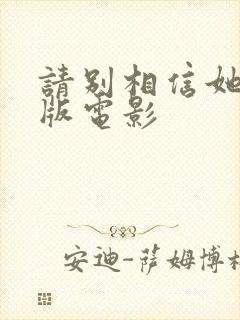 請别相信她
版電影
安迪-萨姆博